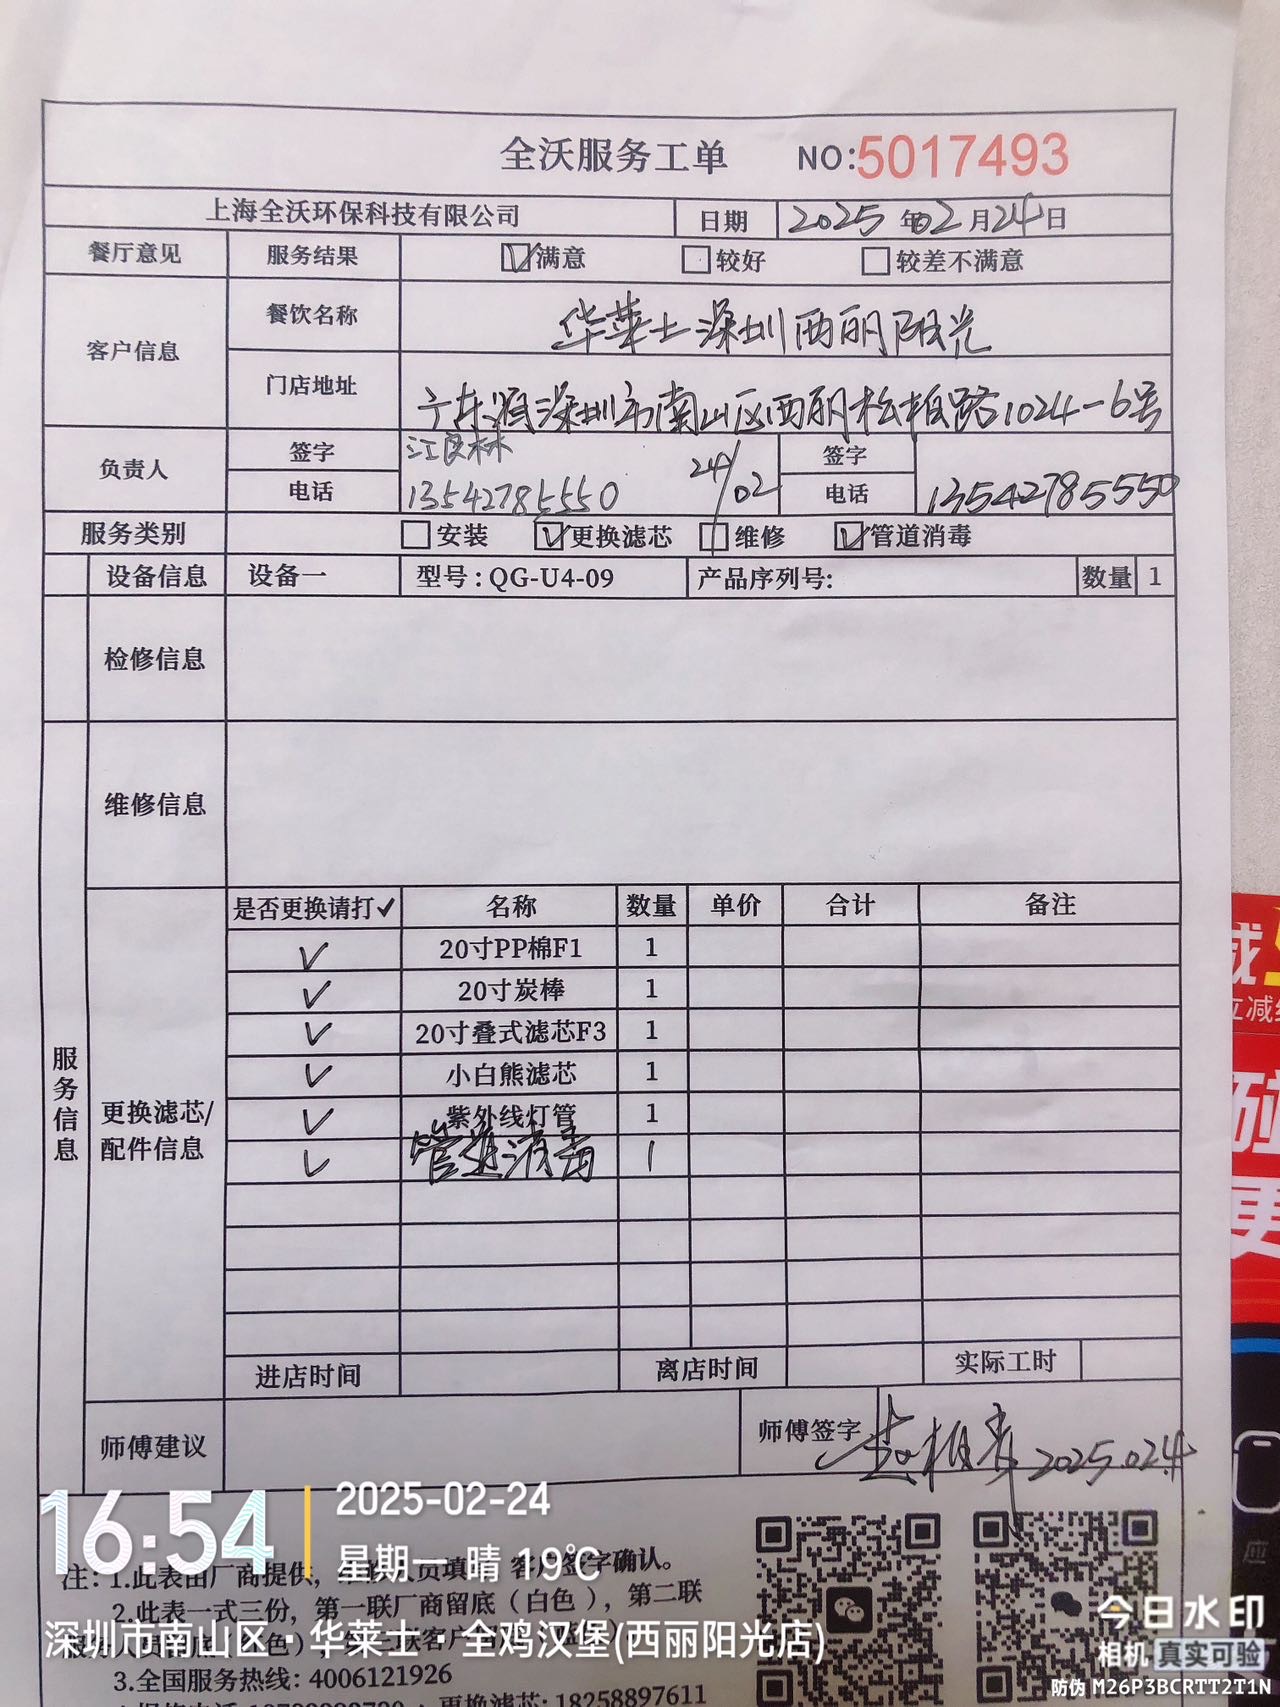 全沃服务工单 NO:5017493
上海全沃环保科技有限公司 日期 2025年02月24日
餐厅意见 服务结果 ☑满意 □较好 □较差不满意
客户信息 餐饮名称 华莱士深圳西丽阳光
门店地址 广东省深圳市南山区西丽松柏路1024-6号
负责人 签字 江良林 24/02 签字
电话 13542785550 电话 13542785550
服务类别 □安装 ☑更换滤芯 □维修 ☑管道消毒
设备信息 设备一 型号：QG-U4-09 产品序列号: 数量 1
检修信息
维修信息
服务信息
更换滤芯/
配件信息
是否更换请打✓ 名称 数量 单价 合计 备注
✓ 20寸PP棉F1 1
✓ 20寸炭棒 1
✓ 20寸叠式滤芯F3 1
✓ 小白熊滤芯 1
✓ 紫外线灯管 1
✓ 管道消毒 1
进店时间 离店时间 实际工时
师傅建议 师傅签字 2025.024
16:54
2025-02-24
星期一 晴 19℃
深圳市南山区·华莱士·全鸡汉堡(西丽阳光店)
注：1.此表由厂商提供，人员填 客户签字确认。
2.此表一式三份，第一联厂商留底（白色），第二联
3.全国服务热线: 4006121926
更换滤芯: 18258897611
今日水印
相机 真实可验
防伪 M26P3BCRTT2T1N
减
立减
更